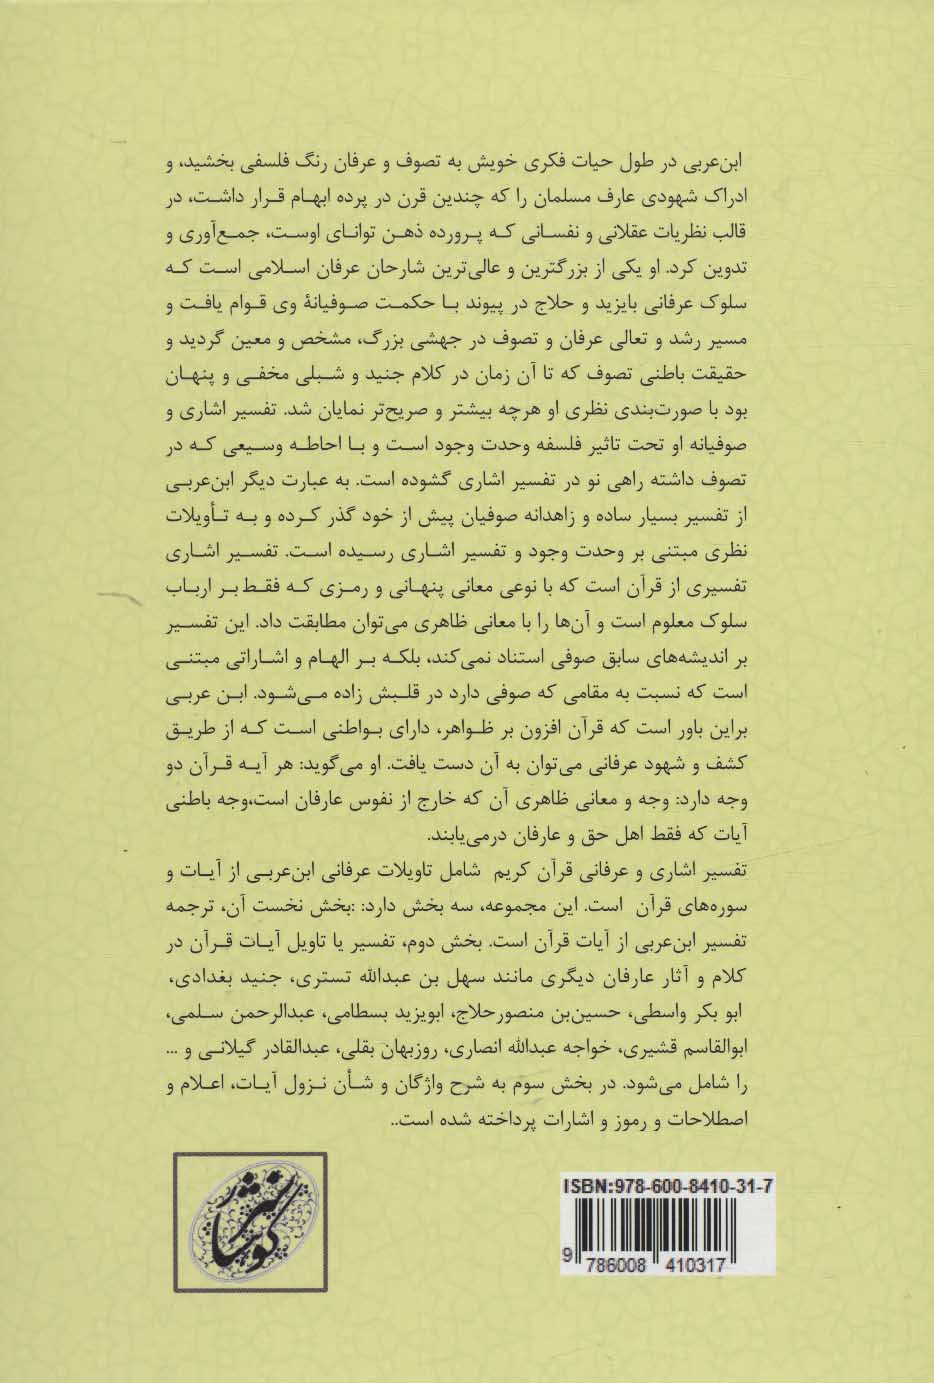 ابن‌عربی در طول حیات فکری خویش به تصوف و عرفان رنگ فلسفی بخشید، و
ادراک شهودی عارف مسلمان را که چندین قرن در پرده ابهام قرار داشت، در
قالب نظریات عقلانی و نفسانی که پرورده ذهن توانای اوست، جمع‌آوری و
تدوین کرد. او یکی از بزرگترین و عالی‌ترین شارحان عرفان اسلامی است که
سلوک عرفانی بایزید و حلاج در پیوند با حکمت صوفیانهٔ وی قوام یافت و
مسیر رشد و تعالی عرفان و تصوف در جهشی بزرگ، مشخص و معین گردید و
حقیقت باطنی تصوف که تا آن زمان در کلام جنید و شبلی مخفی و پنهان
بود با صورت‌بندی نظری او هرچه بیشتر و صریح‌تر نمایان شد. تفسیر اشاری و
صوفیانه او تحت تاثیر فلسفه وحدت وجود است و با احاطه وسیعی که در
تصوف داشته راهی نو در تفسیر اشاری گشوده است. به عبارت دیگر ابن‌عربی
از تفسیر بسیار ساده و زاهدانه صوفیان پیش از خود گذر کرده و به تأویلات
نظری مبتنی بر وحدت وجود و تفسیر اشاری رسیده است. تفسیر اشاری
تفسیری از قرآن است که با نوعی معانی پنهانی و رمزی که فقط بر ارباب
سلوک معلوم است و آن‌ها را با معانی ظاهری می‌توان مطابقت داد. این تفسیر
بر اندیشه‌های سابق صوفی استناد نمی‌کند، بلکه بر الهام و اشاراتی مبتنی
است که نسبت به مقامی که صوفی دارد در قلبش زاده می‌شود. ابن عربی
براین باور است که قرآن افزون بر ظواهر، دارای بواطنی است که از طریق
کشف و شهود عرفانی می‌توان به آن دست یافت. او می‌گوید: هر آیه قرآن دو
وجه دارد: وجه و معانی ظاهری آن که خارج از نفوس عارفان است،وجه باطنی
آیات که فقط اهل حق و عارفان درمی‌یابند.
تفسیر اشاری و عرفانی قرآن کریم شامل تاویلات عرفانی ابن‌عربی از آیات و
سوره‌های قرآن است. این مجموعه، سه بخش دارد: :بخش نخست آن، ترجمه
تفسیر ابن‌عربی از آیات قرآن است. بخش دوم، تفسیر یا تاویل آیات قرآن در
کلام و آثار عارفان دیگری مانند سهل بن عبدالله تستری، جنید بغدادی،
ابو بکر واسطی، حسین‌بن منصورحلاج، ابویزید بسطامی، عبدالرحمن سلمی،
ابوالقاسم قشیری، خواجه عبدالله انصاری، روزبهان بقلی، عبدالقادر گیلانی و ...
را شامل می‌شود. در بخش سوم به شرح واژگان و شأن نزول آیات، اعلام و
اصطلاحات و رموز و اشارات پرداخته شده است..
نشر
کوشا
ISBN:978-600-8410-31-7
9 786008 410317